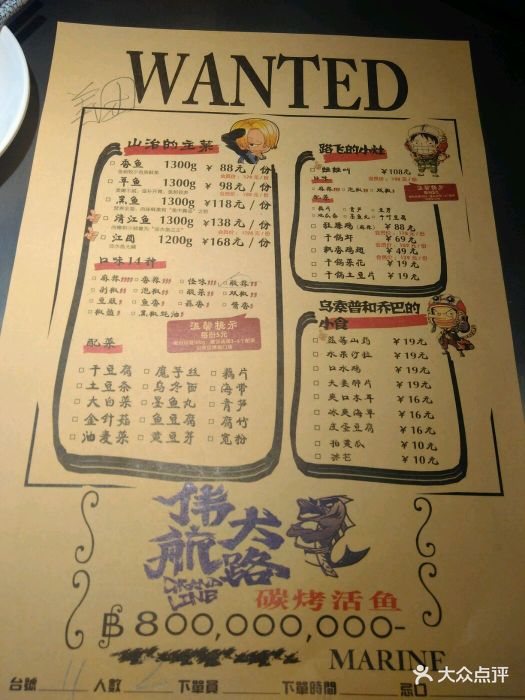 WANTED
山治的主菜
香鱼 1300g ¥88元/份
草鱼 1300g ¥98元/份
黑鱼 1300g ¥118元/份
清江鱼 1300g ¥138元/份
江团 1200g ¥168元/份
口味14种
麻辣 香辣 怪味 酸辣
剁椒 泡椒 酸菜 双椒
豆豉 鱼香 蒜香 酱香
椒盐 豆椒蚝油
温馨提示
每份5元
配菜
干豆腐 魔子丝 藕片
土豆条 乌冬面 海带
大白菜 墨鱼丸 青笋
金针菇 鱼豆腐 腐竹
油麦菜 黄豆芽 宽粉
路飞的小灶
¥108元
口味
麻辣 泡椒 双椒
配菜
藕片 青笋 土豆
¥88元
干锅虾 ¥69元
¥49元
干锅菜花 ¥19元
干锅土豆片 ¥19元
温馨提示
乌索普和乔巴的
小食
蓝莓山药 ¥19元
水果沙拉 ¥19元
口水鸡 ¥19元
夫妻肺片 ¥19元
爽口木耳 ¥16元
冰爽海草 ¥16元
皮蛋豆腐 ¥16元
拍黄瓜 ¥10元
¥10元
伟大航路
GRAND LINE
碳烤活鱼
฿800,000,000-
MARINE
台號 11 人數 2 下單員 下單時間 忌口
大众点评